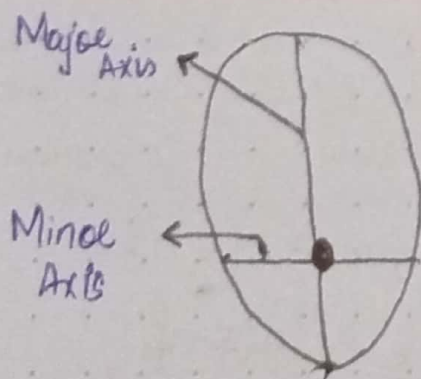 Major
Axis
Minor
Axis